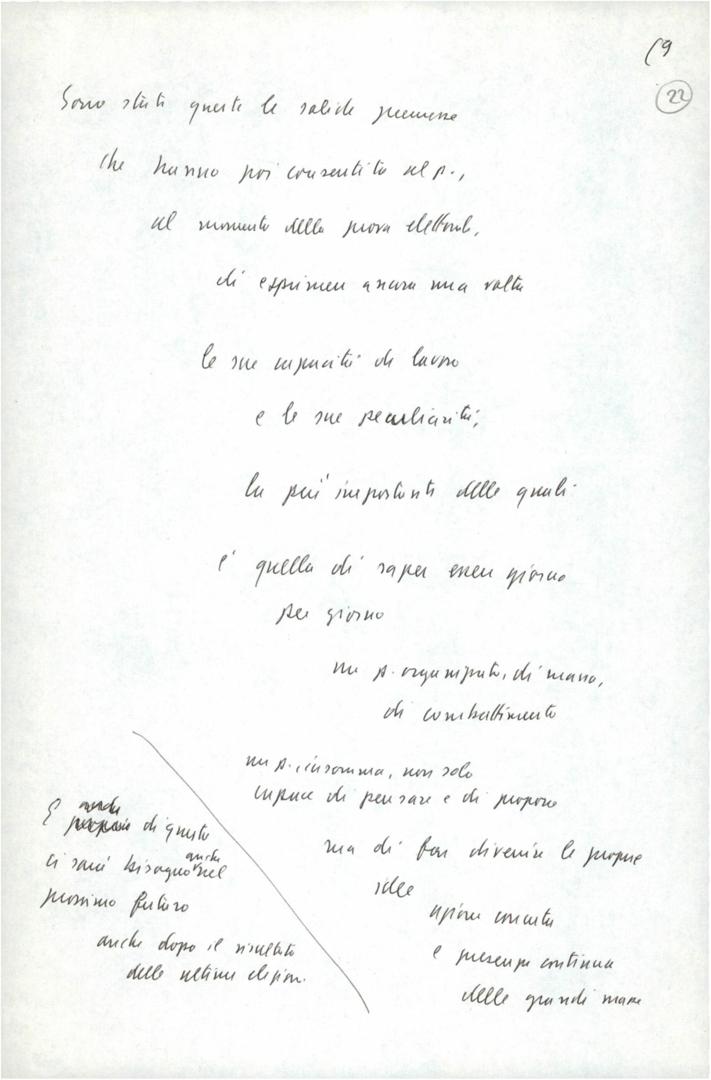 (9
22
Sono state queste le solide premesse
che hanno poi consentito al p.,
al momento della prova elettorale,
di esprimere ancora una volta
le sue capacità di lavoro
e le sue peculiarità,
la più importante delle quali
è quella di saper essere giorno
per giorno
un p. organizzato, di massa,
di combattimento
un p. insomma, non solo
capace di pensare e di proporre
ma di far divenire le proprie
idee
azione concreta
e presenza continua
delle grandi masse
E anche di questo
ci sarà bisogno anche nel
prossimo futuro
anche dopo il risultato
delle ultime elezioni.